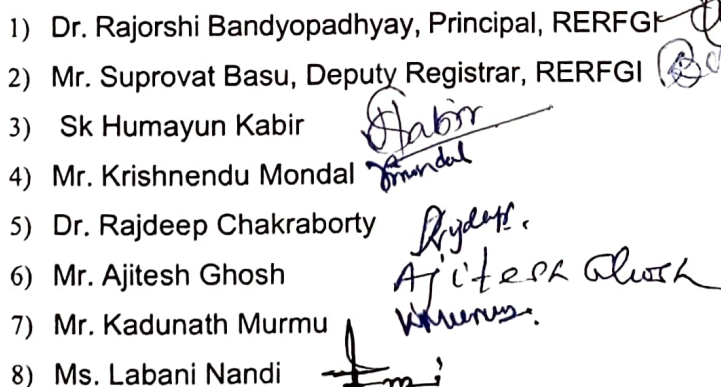 1) Dr. Rajorshi Bandyopadhyay, Principal, RERFGI
2) Mr. Suprovat Basu, Deputy Registrar, RERFGI
3) Sk Humayun Kabir Kabir
4) Mr. Krishnendu Mondal Kmondal
5) Dr. Rajdeep Chakraborty
6) Mr. Ajitesh Ghosh Ajitesh Ghosh
7) Mr. Kadunath Murmu
8) Ms. Labani Nandi